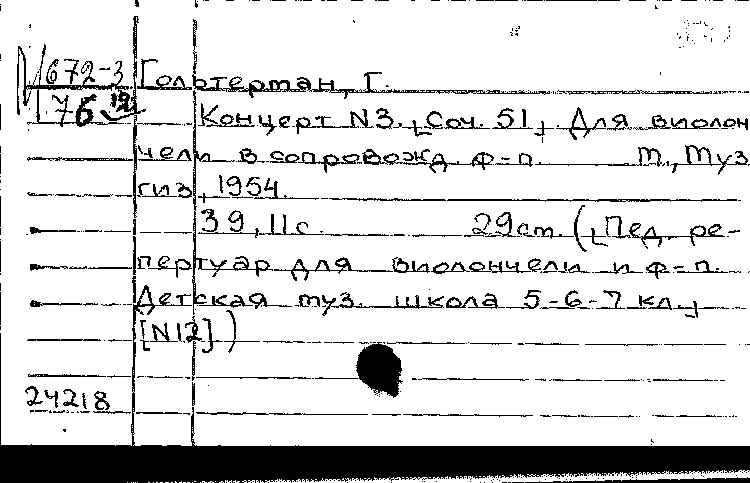 N 672-3
76
Гольтерман, Г.
Концерт N3. [Соч. 51]. Для виолон
чели в сопровожд. ф=п. М., Муз
гиз, 1954.
39, 11с. 29ст. ([Пед. ре-
пертуар для виолончели и ф=п.
Детская муз. школа 5-6-7 кл.]
[N12])
24218